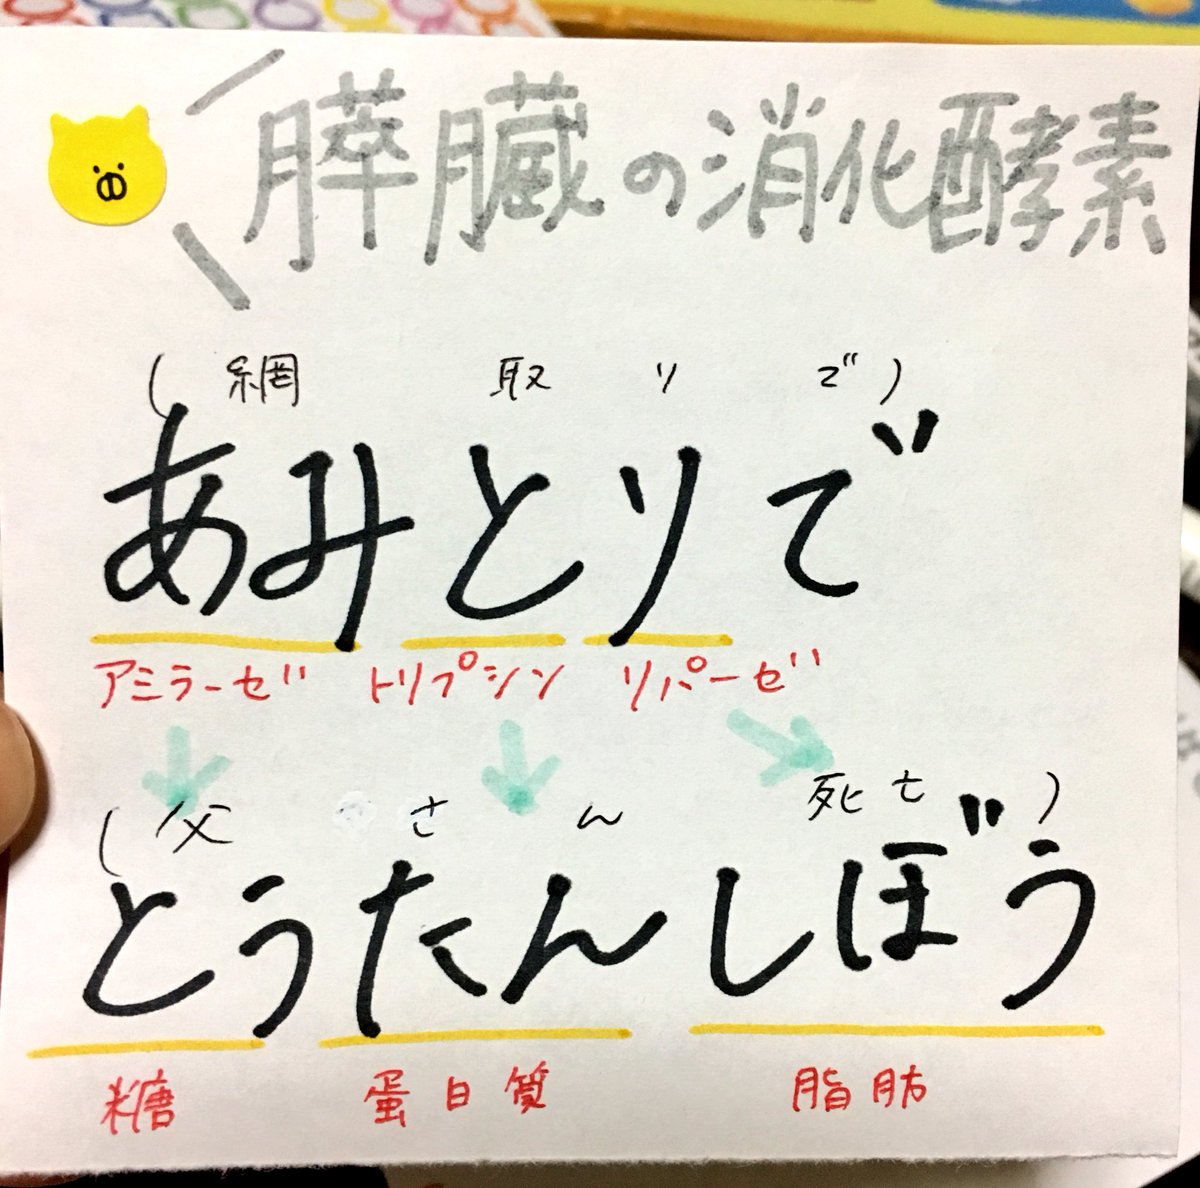 膵臓の消化酵素
(網取りで)
あみとりで
アミラーゼ トリプシン リパーゼ
(父さん死亡)
とうたんしぼう
糖 蛋白質 脂肪